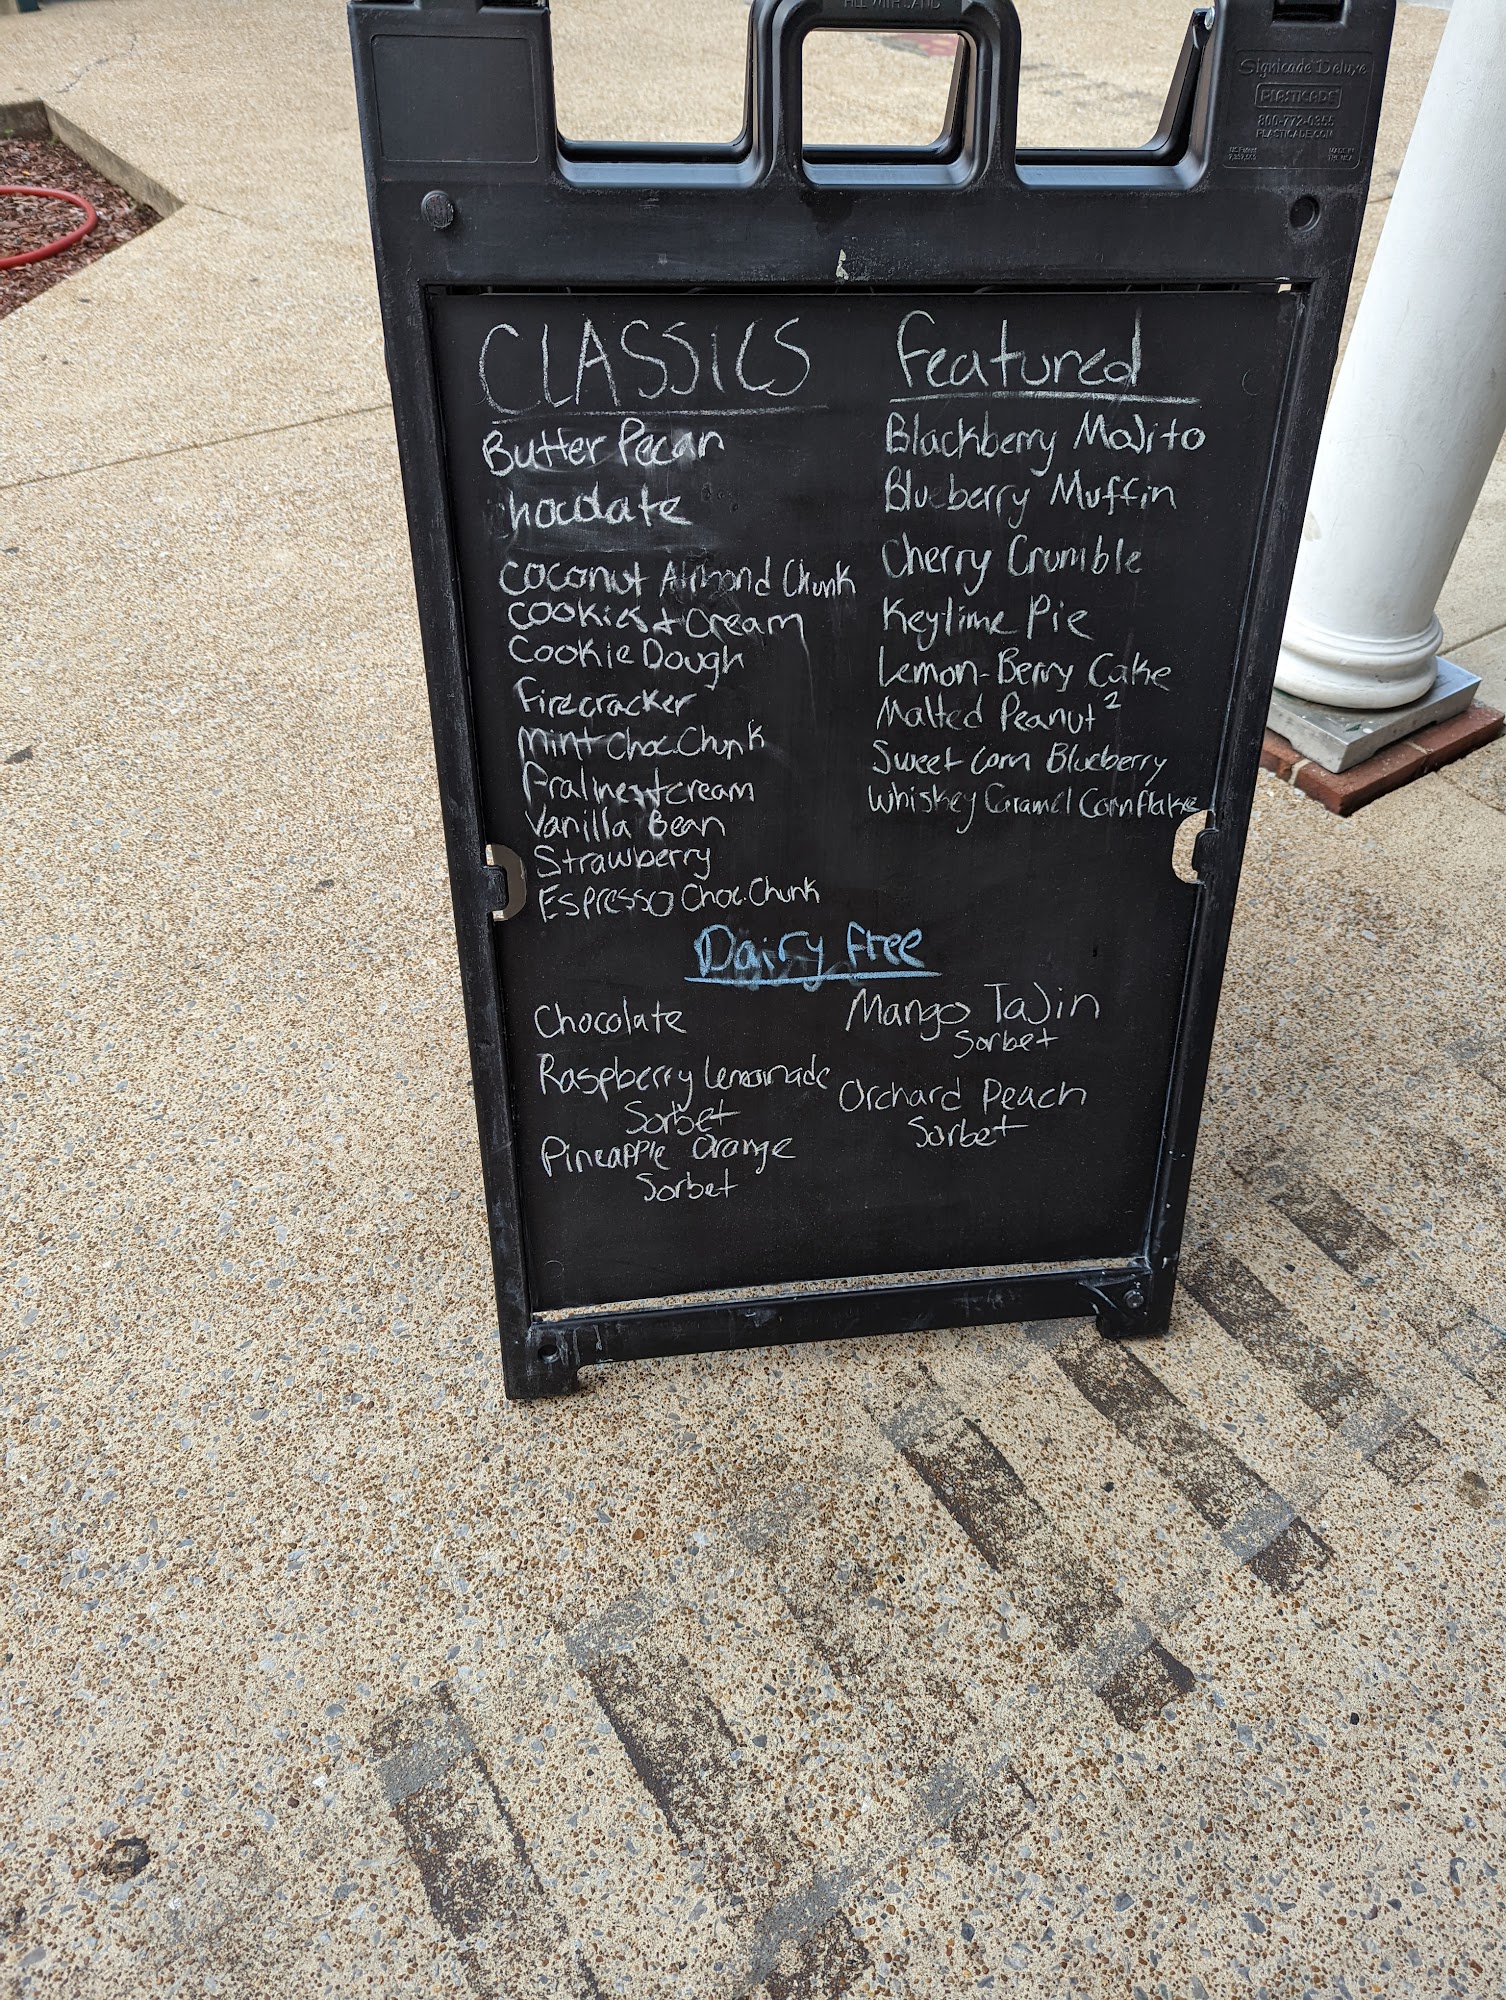 FILL WITH SAND
Signicade Deluxe
PLASTICADE
800-772-0355
PLASTICADE.COM
MADE IN
THE USA
CLASSICS
Butter Pecan
Chocolate
Coconut Almond Chunk
Cookies + Cream
Cookie Dough
Firecracker
Mint Choc. Chunk
Pralines + cream
Vanilla Bean
Strawberry
Espresso Choc. Chunk
Featured
Blackberry Mojito
Blueberry Muffin
Cherry Crumble
Keylime Pie
Lemon-Berry Cake
Malted Peanut²
Sweet Corn Blueberry
Whiskey Caramel Cornflake
Dairy free
Chocolate
Raspberry Lemonade
Sorbet
Pineapple Orange
Sorbet
Mango Tajin
Sorbet
Orchard Peach
Sorbet